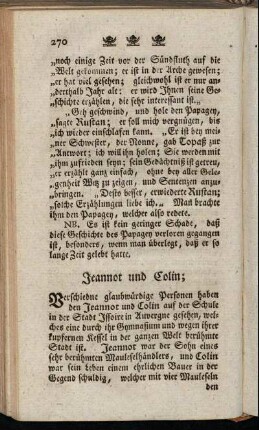 270
„noch einige Zeit vor der Sündfluth auf die
„Welt gekommen; er ist in der Arche gewesen;
„er hat viel gesehen; gleichwohl ist er nur an=
„derthalb Jahr alt: er wird Ihnen seine Ge=
„schichte erzählen, die sehr interessant ist.„
„Geh geschwind, und hole den Papagey,
„sagte Rustan; er soll mich vergnügen, bis
„ich wieder einschlafen kann. „Er ist bey mei=
„ner Schwester, der Nonne, gab Topaß zur
„Antwort; ich will ihn holen; Sie werden mit
„ihm zufrieden seyn; sein Gedächtniß ist getreu,
„er erzählt ganz einfach, ohne bey aller Gele=
„genheit Witz zu zeigen, und Sentenzen anzu=
„bringen. „Desto besser, erwiederte Rustan;
„solche Erzählungen liebe ich.„ Man brachte
ihm den Papagey, welcher also redete.
NB. Es ist kein geringer Schade, daß
diese Geschichte des Papagey verloren gegangen
ist, besonders, wenn man überlegt, daß er so
lange Zeit gelebt hatte.
Jeannot und Colin;
Verschiedne glaubwürdige Personen haben
den Jeannot und Colin auf der Schule
in der Stadt Issoire in Auvergne gesehen, wel=
ches eine durch ihr Gymnasium und wegen ihrer
kupfernen Kessel in der ganzen Welt berühmte
Stadt ist. Jeannot war der Sohn eines
sehr berühmten Mauleselhändlers, und Colin
war sein Leben einem ehrlichen Bauer in der
Gegend schuldig, welcher mit vier Mauleseln
den